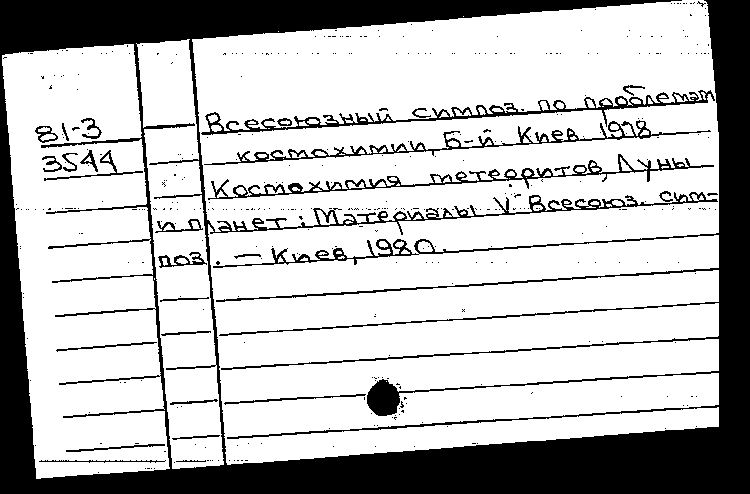 81-3
3544
Всесоюзный симпоз. по проблемам
космохимии, 5-й. Киев. 1978.
Космохимия метеоритов, Луны
и планет: Материалы V Всесоюз. сим-
поз. — Киев, 1980.